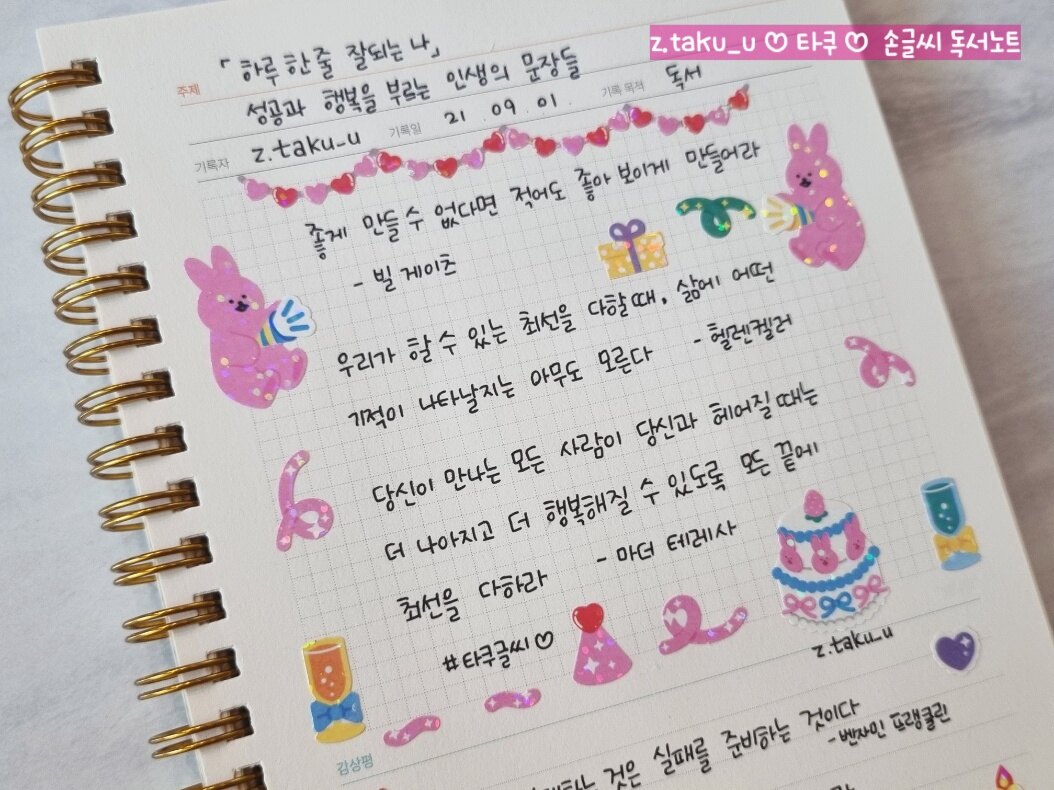 z.taku_u ♡ 타쿠 ♡ 손글씨 독서노트
주제 「하루 한 줄 잘되는 나」
성공과 행복을 부르는 인생의 문장들
기록자 z.taku_u 기록일 21. 09. 01. 기록 목적 독서
좋게 만들 수 없다면 적어도 좋아 보이게 만들어라
- 빌 게이츠
우리가 할 수 있는 최선을 다할 때, 삶에 어떤
기적이 나타날지는 아무도 모른다 - 헬렌켈러
당신이 만나는 모든 사람이 당신과 헤어질 때는
더 나아지고 더 행복해질 수 있도록 모든 끝에
최선을 다하라 - 마더 테레사
#타쿠글씨♡
z.taku_u
감상평
것은 실패를 준비하는 것이다
- 벤자민 프랭클린